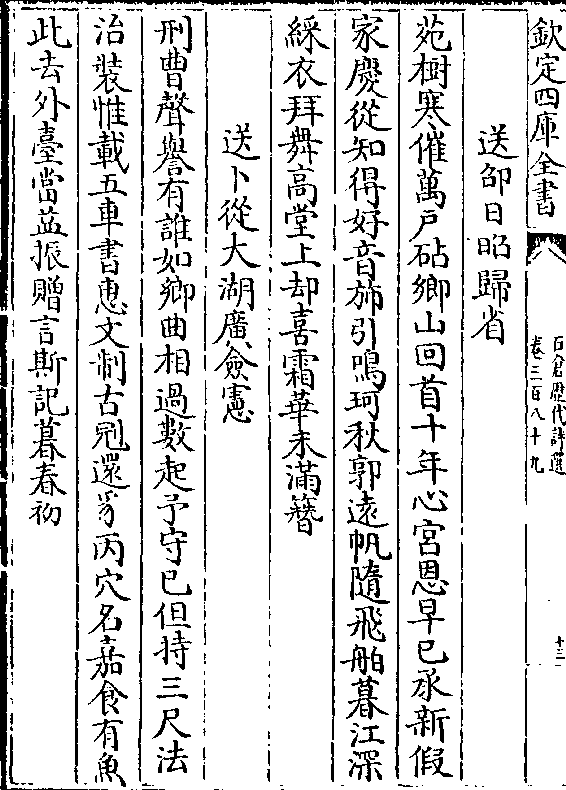 欽定四庫全書
石倉歷代詩選
卷三百八十九
十三
送邵日昭歸省
苑樹寒催萬戶砧鄉山回首十年心宮恩早已承新假
家慶從知得好音旆引鳴珂秋郭遠帆隨飛舶暮江深
綵衣拜舞高堂上却喜霜華未滿簪
送卜從大湖廣僉憲
刑曹聲譽有誰如鄉曲相過數起予守已但持三尺法
治裝惟載五車書惠文制古冠還豸丙穴名嘉食有魚
此去外臺當益振贈言斯記暮春初